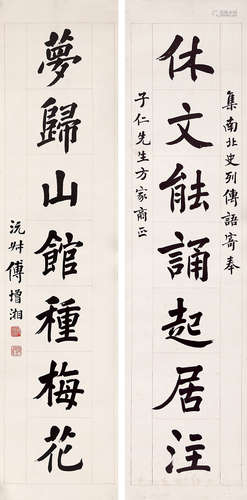 集南北史列傳語寄奉
休文能誦起居注
子仁先生方家商正
夢歸山館種梅花
沅叔傅增湘